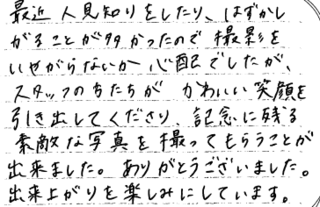 最近 人見知りをしたり、はずかし
がることが多かったので 撮影を
いやがらないか 心配でしたが、
スタッフの方たちが かわいい笑顔を
引き出してくださり、記念に残る
素敵な写真を撮ってもらうことが
出来ました。ありがとうございました。
出来上がりを楽しみにしています。